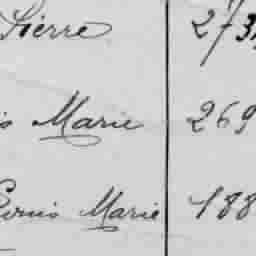 Pierre 273
is Marie 269
Louis Marie 188